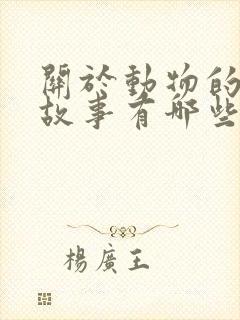 關於動物的
故事有哪些
楊廣王